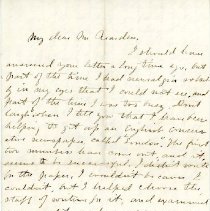 My dear Mr Reardon,
I should have
answered your letter a long time ago, but
part of the time I had neuralgia so bad
ly in my eyes that I could not see, and
part of the time I was too busy. Don't
laugh when I tell you that I have been
helping to get up an English conserv
ative newspaper, called London. The first
numbers have come out, and it
seems to be successful. I didn't write
for the paper, I wouldn't because I
couldn't, but I helped choose the
staff of writers for it, and examined